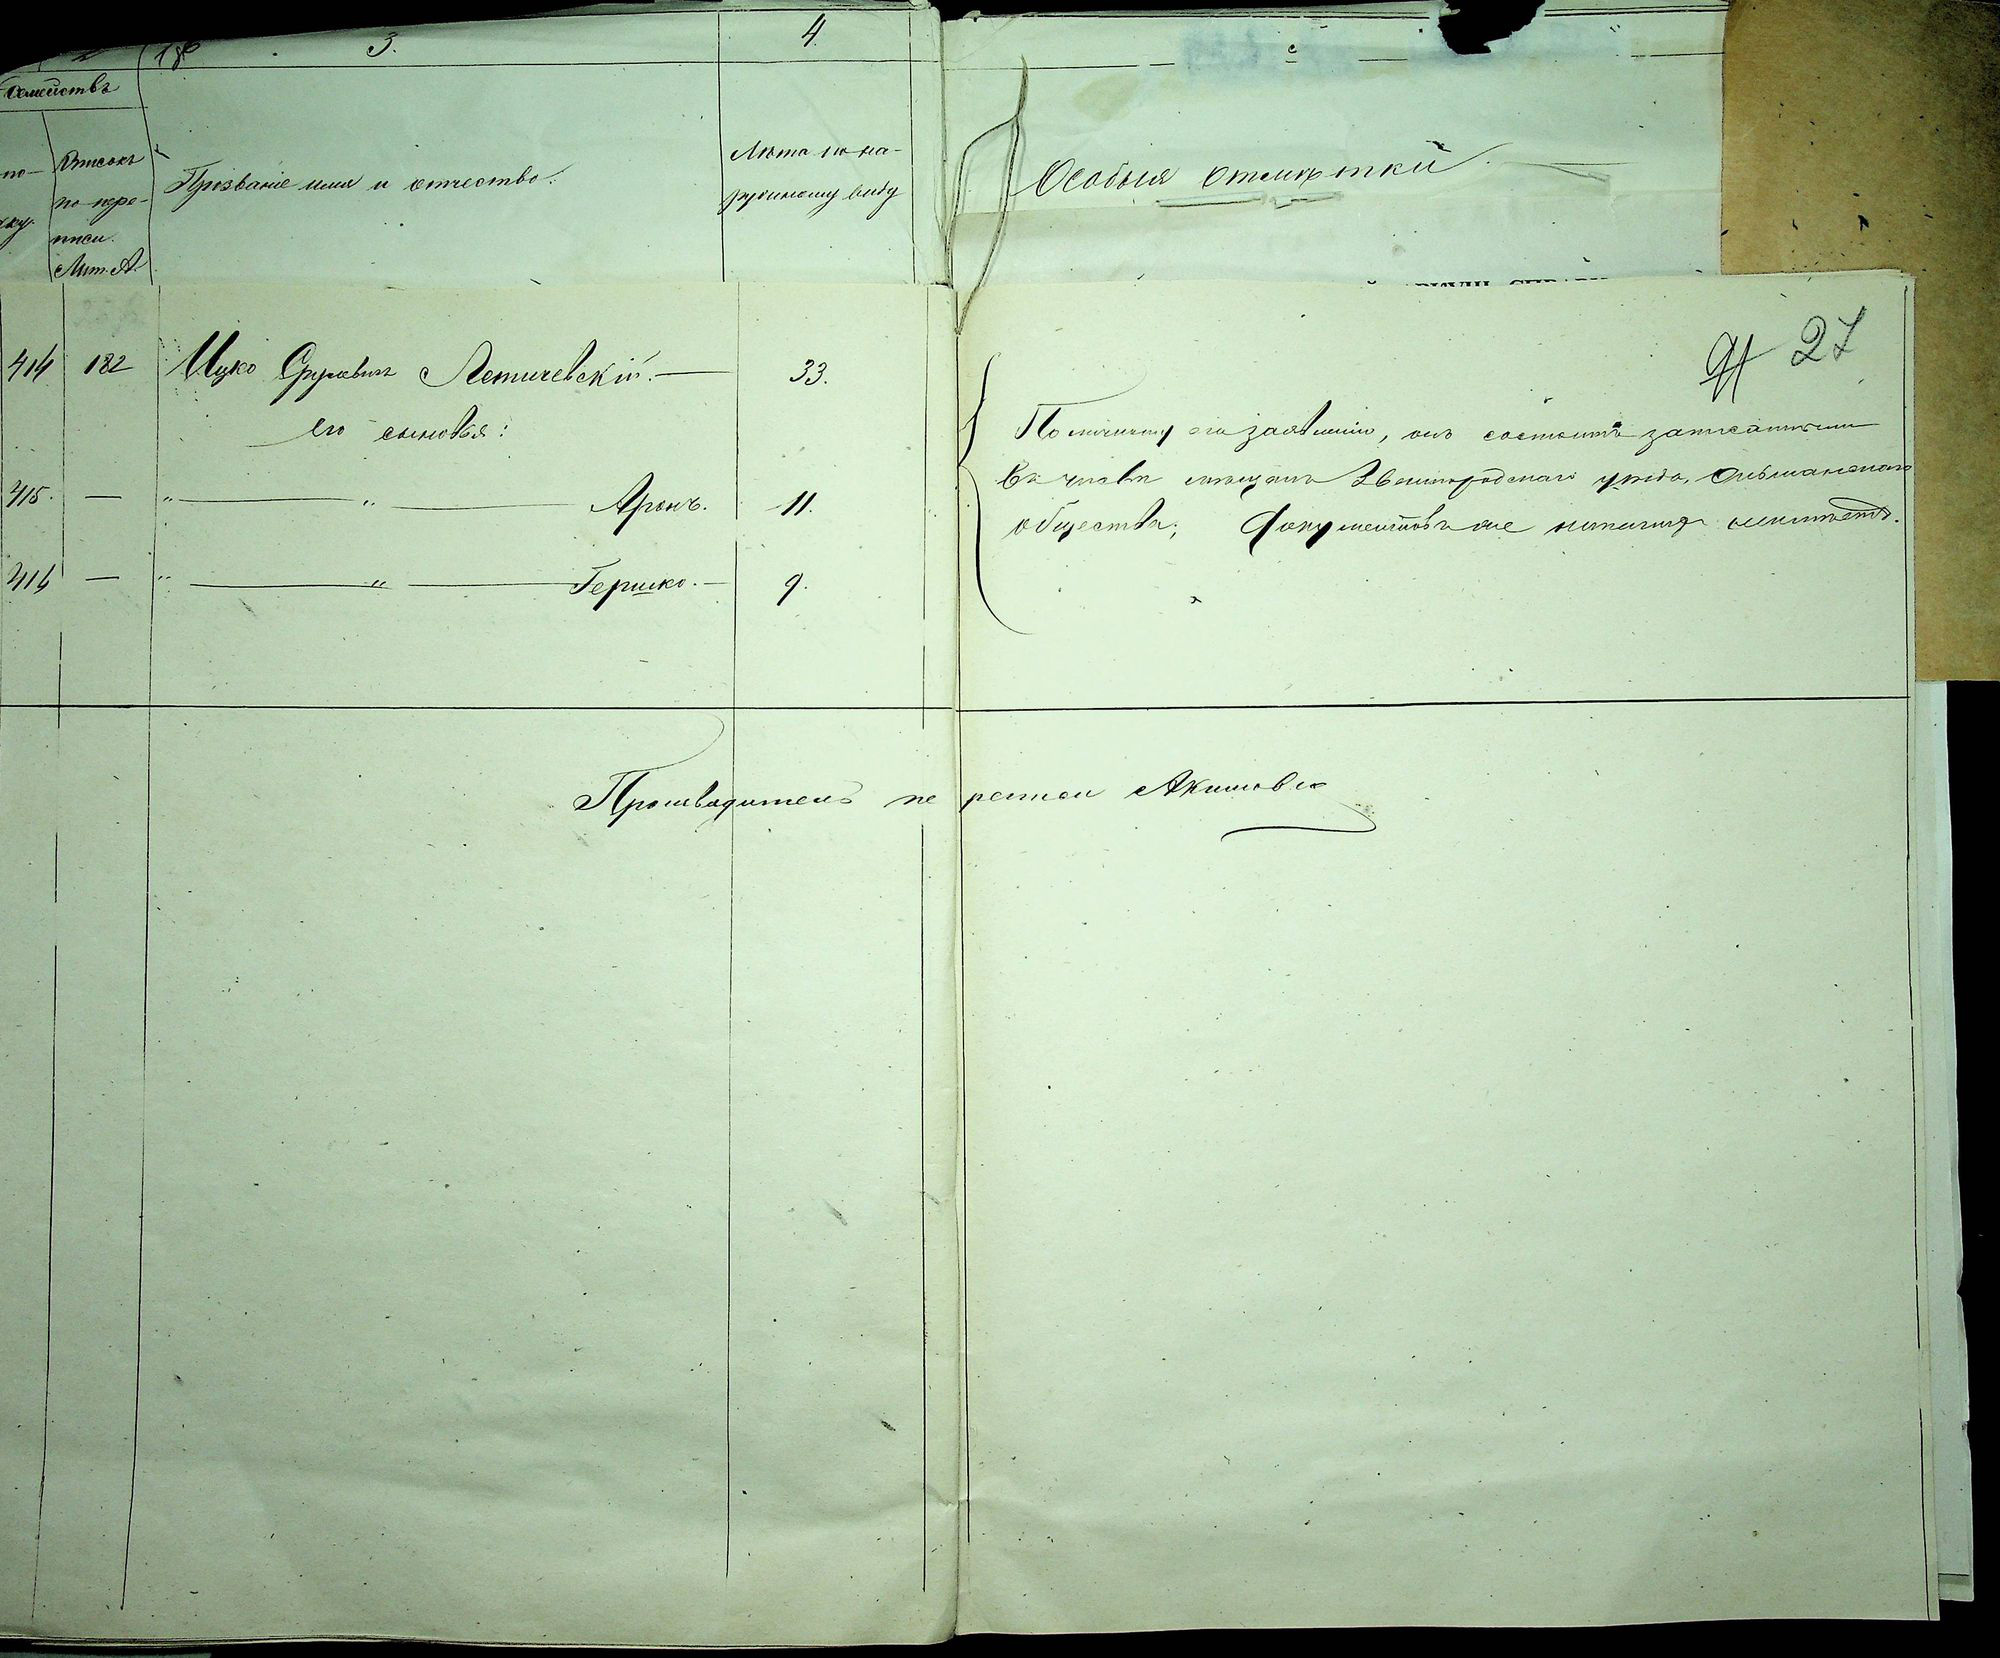 3.
4.
Семействъ
по-
Списокъ
по пере-
писи
Лит. А.
Прозваніе имя и отчество.
Лѣта по на-
ружному виду
Особыя отмѣтки
27
414 182 Ицко Сруловичъ Летичевскій. — 33.
его сыновья:
415. — " — " — Аронъ. 11.
416 — " — " — Гершко. — 9.
По личному его заявленію, онъ состоитъ записаннымъ
въ число мѣщанъ Звенигородскаго уѣзда, Ольшанскаго
общества; документовъ же никакихъ неимѣетъ.
Производитель переписи